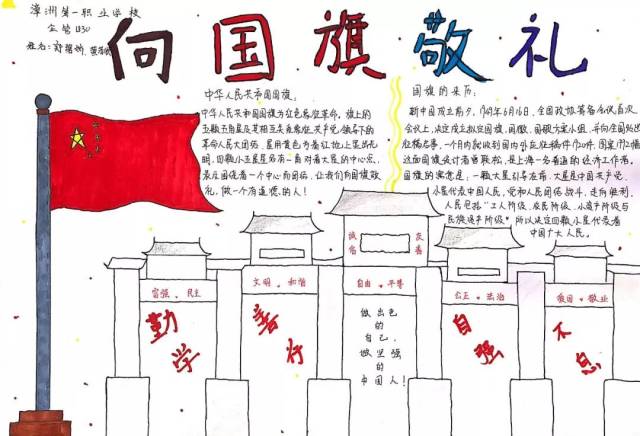 漳州第一职业学校
向国旗敬礼
中华人民共和国国旗:
中华人民共和国国旗为红色象征革命,旗上的
五颗五角星及其相互关系象征共产党领导下的
革命人民大团结。星用黄色为着红地上显出光
明,四颗小五角星各有一角对着大星的中心点,
表示围绕着一个中心而团结,让我们向国旗敬
礼,做一个有道德的人!
国旗的来历:
新中国成立前夕,1949年6月16日,全国政协筹备会议首次
会议上,决定成立拟定国旗,国徽,国歌方案小组,并向全国发出
征稿启事,一个月内就收到国内外应征稿件
这面国旗设计者曾联松,是上海一名普通的经济工作者。
国旗的寓意是:一颗大星引导在前,大星是中国共产党,
小星代表中国人民,党和人民团结战斗,走向胜利,
人民包括“工人阶级、农民阶级、小资产阶级与
民族资产阶级”所以决定四颗小星代表着
中国广大人民。
诚信 友善
富强、民主
文明、和谐
自由、平等
公正、法治
爱国、敬业
勤学
善行
做出色
的
自己,
做坚强
的
中国人!
自强
不息